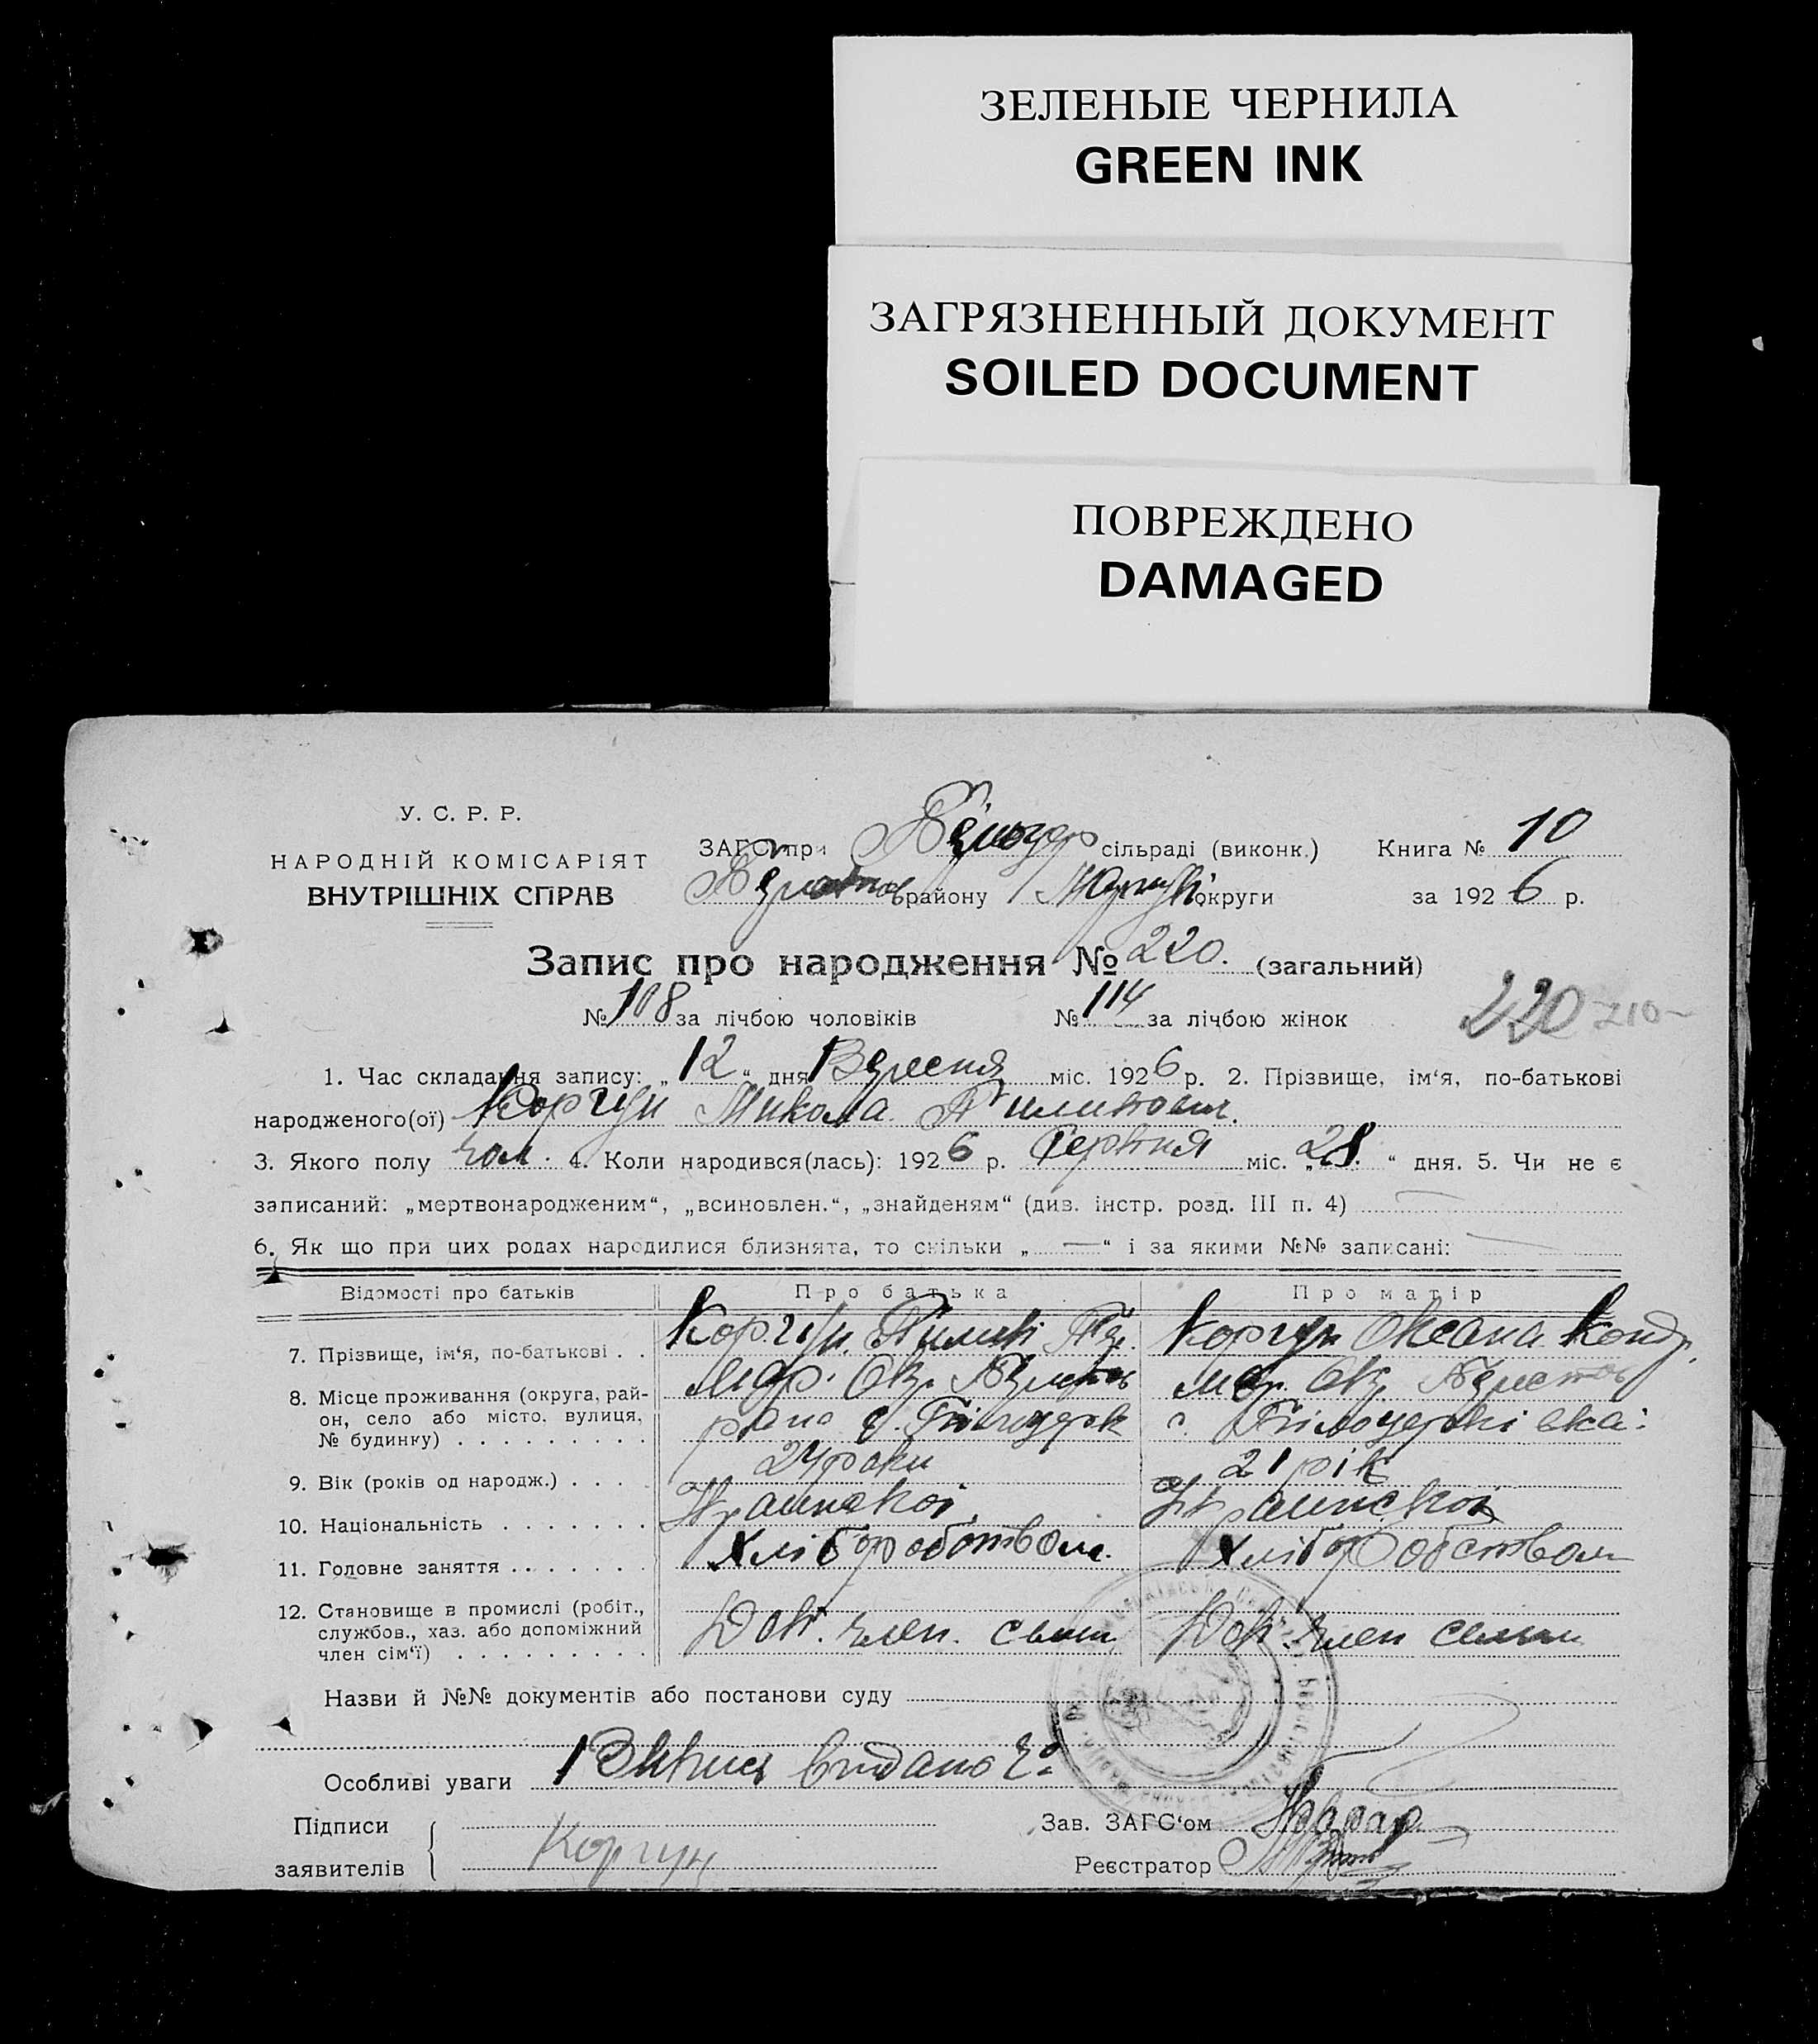 ЗЕЛЕНЫЕ ЧЕРНИЛА
GREEN INK
ЗАГРЯЗНЕННЫЙ ДОКУМЕНТ
SOILED DOCUMENT
ПОВРЕЖДЕНО
DAMAGED
У. С. Р. Р.
НАРОДНІЙ КОМІСАРІЯТ
ВНУТРІШНІХ СПРАВ
ЗАГС при сільраді (виконк.) Книга № 10
району округи за 1926 р.
Запис про народження № 220. (загальний)
№ 108 за лічбою чоловіків № 114 за лічбою жінок 220
1. Час складання запису: „12“ дня Вересня міс. 1926 р. 2. Прізвище, ім‘я, по-батькові
народженого(ої) Коргун Микола Пилипович.
3. Якого полу чол. 4. Коли народився(лась): 1926 р. Серпня міс. „28.“ дня. 5. Чи не є
записаний: „мертвонародженим“, „всиновлен.“, „знайденям“ (див. інстр. розд. III п. 4) —
6. Як що при цих родах народилися близнята, то скільки „—“ і за якими №№ записані: —
Відомості про батьків Про батька Про матір
7. Прізвище, ім‘я, по-батькові . . Коргун Пилип Коргун Оксана Конд.
8. Місце проживання (округа, рай-
он, село або місто, вулиця,
№ будинку) . . . . . . . . .
Мар. Окр.
Мар. Окр.
с.
с.
9. Вік (років од народж.) . . . . 24 роки 21 рік
10. Національність . . . . . . . Украинской Украинской
11. Головне заняття . . . . . . . Хліборобством. Хліборобством
12. Становище в промислі (робіт.,
службов., хаз. або допоміжний
член сім‘ї) . . . . . . . . .
Доп. член. семьи Доп. член семьи
Назви й №№ документів або постанови суду
Особливі уваги Випись видано
Підписи
заявителів Коргун
Зав. ЗАГС‘ом
Реєстратор